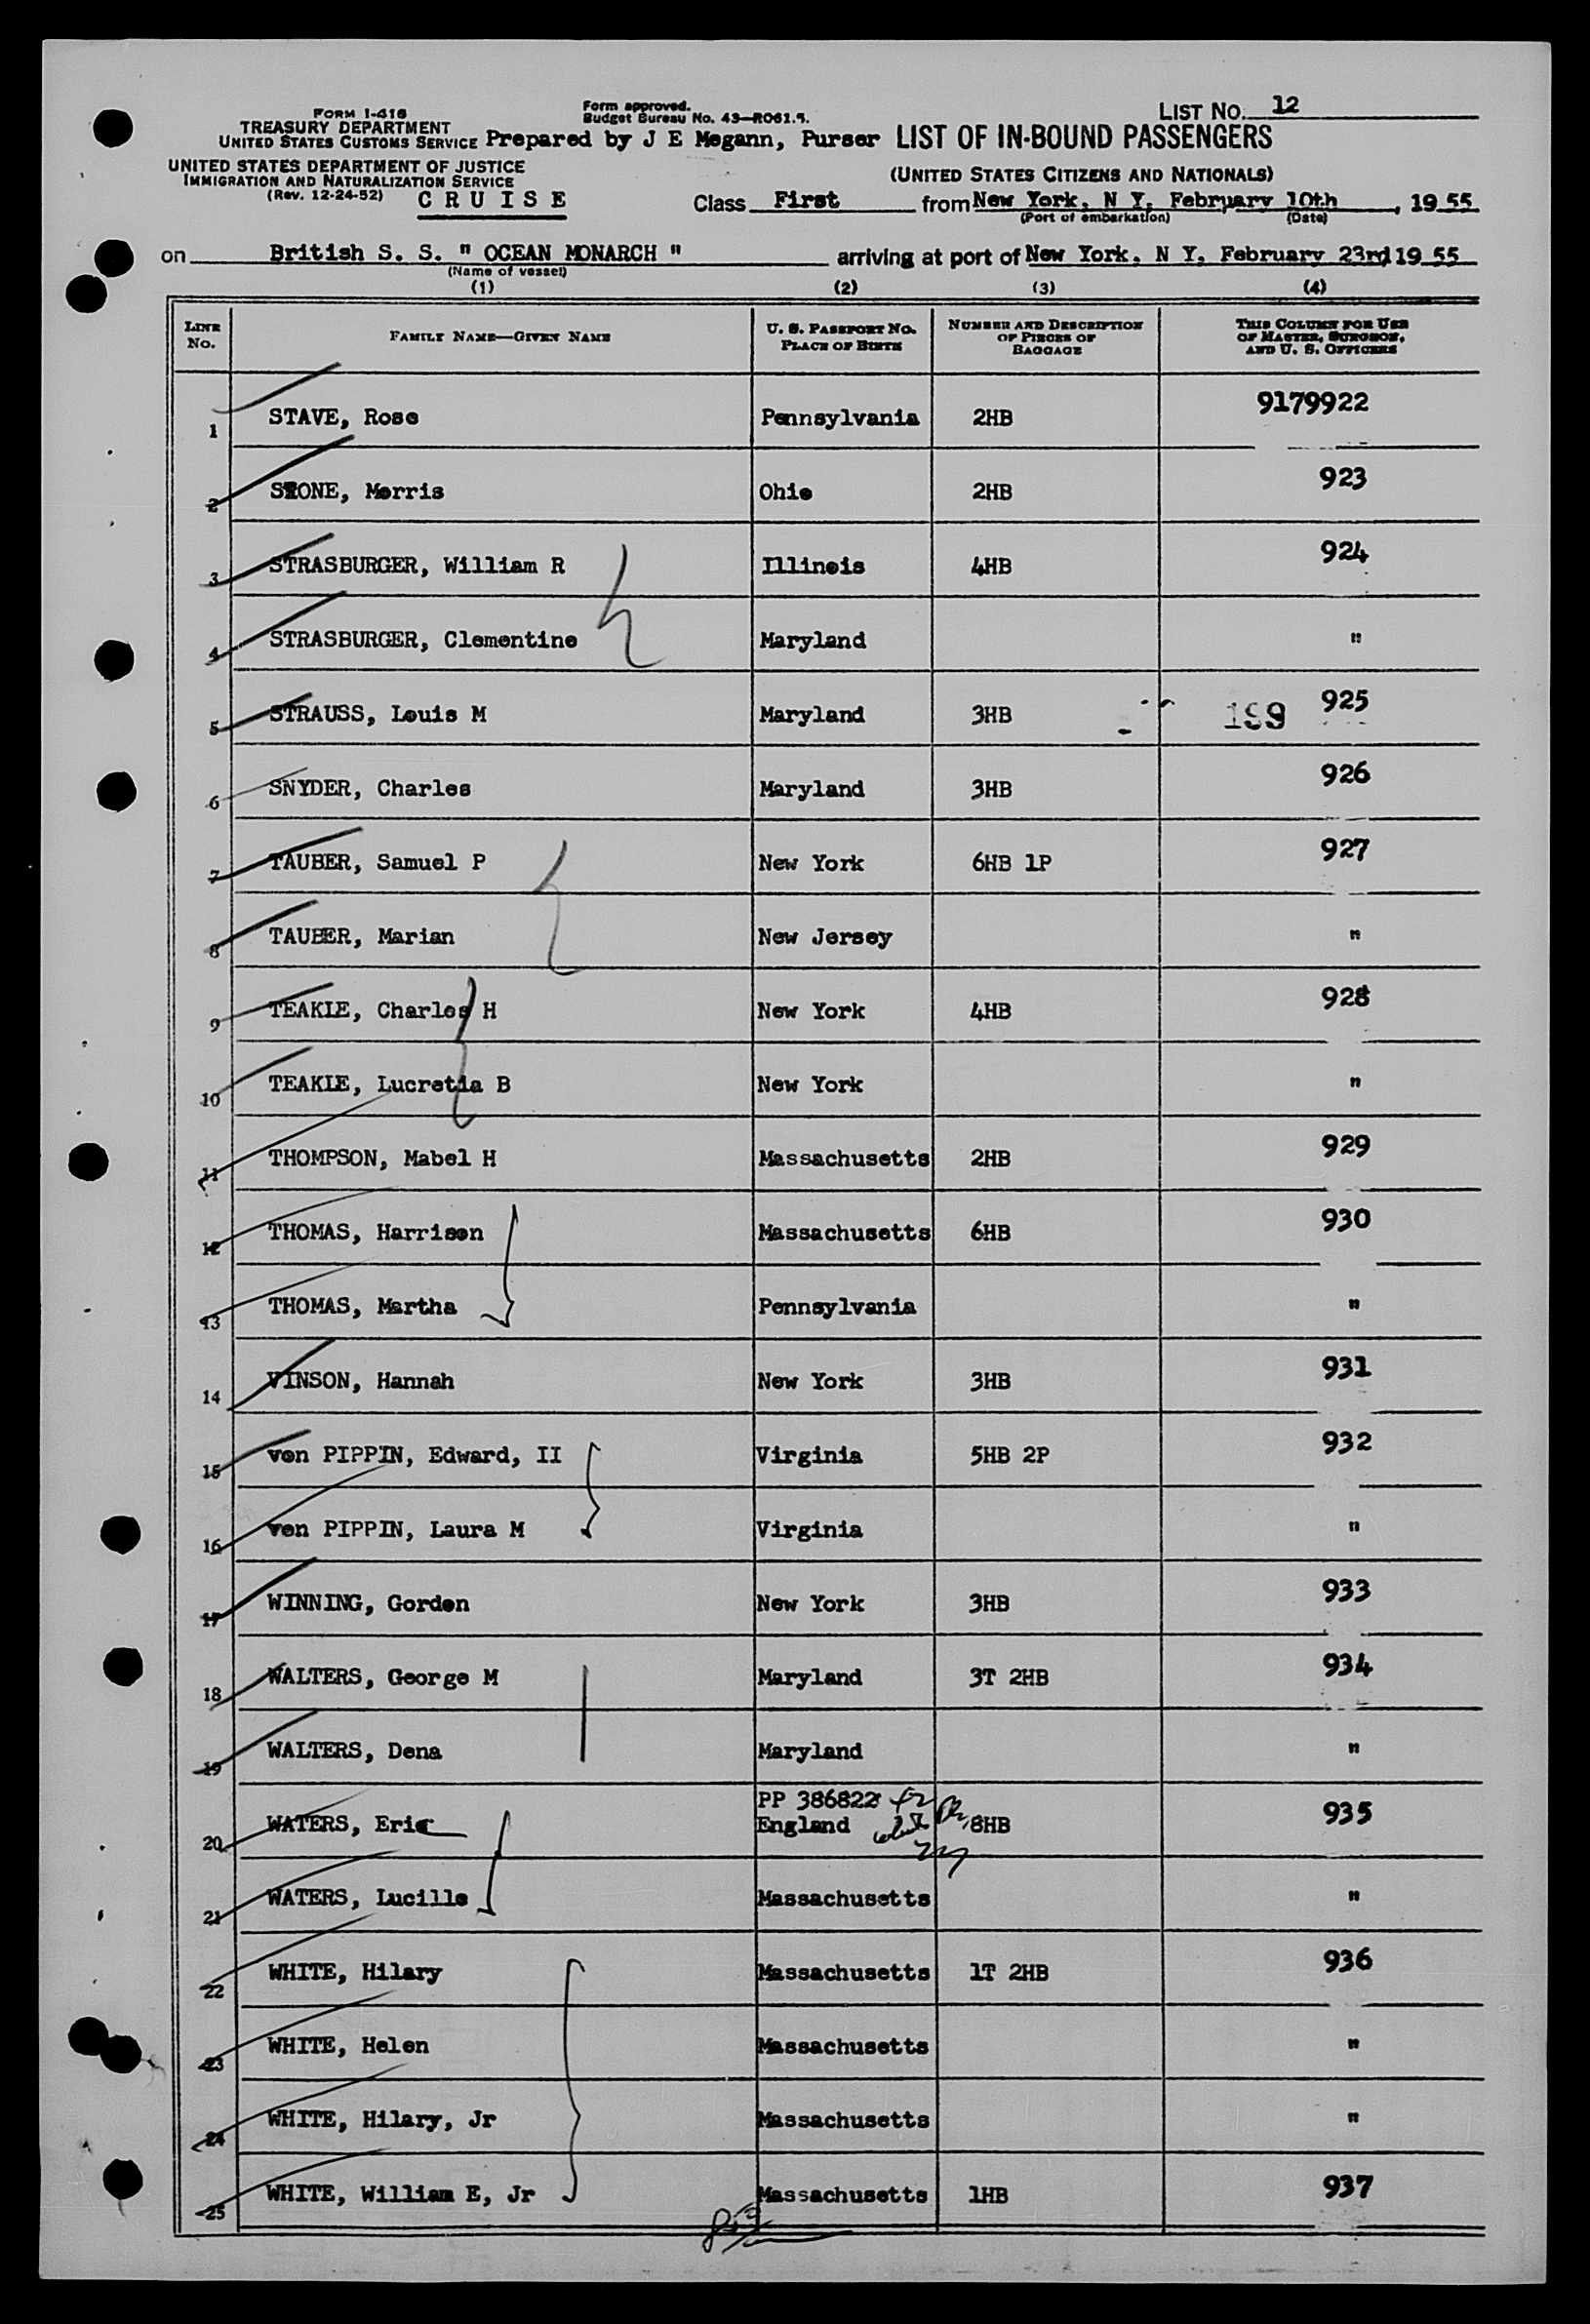 Form I-416
TREASURY DEPARTMENT
UNITED STATES CUSTOMS SERVICE
Form approved.
Budget Bureau No. 43—R061.5.
LIST NO. 12
Prepared by J E Megann, Purser LIST OF IN-BOUND PASSENGERS
UNITED STATES DEPARTMENT OF JUSTICE
IMMIGRATION AND NATURALIZATION SERVICE
(Rev. 12-24-52) C R U I S E
(UNITED STATES CITIZENS AND NATIONALS)
Class First from New York, N Y, February 10th, 1955
(Port of embarkation) (Date)
on British S. S. " OCEAN MONARCH " arriving at port of New York, N Y, February 23rd 1955
(Name of vessel)
(1) (2) (3) (4)
LINE NO. FAMILY NAME—GIVEN NAME U. S. PASSPORT NO. PLACE OF BIRTH NUMBER AND DESCRIPTION OF PIECES OF BAGGAGE THIS COLUMN FOR USE OF MASTER, SURGEON, AND U. S. OFFICERS
1 STAVE, Rose Pennsylvania 2HB 9179922
2 STONE, Morris Ohio 2HB 923
3 STRASBURGER, William R Illinois 4HB 924
4 STRASBURGER, Clementine Maryland "
5 STRAUSS, Louis M Maryland 3HB 199 925
6 SNYDER, Charles Maryland 3HB 926
7 TAUBER, Samuel P New York 6HB 1P 927
8 TAUBER, Marian New Jersey "
9 TEAKLE, Charles H New York 4HB 928
10 TEAKLE, Lucretia B New York "
11 THOMPSON, Mabel H Massachusetts 2HB 929
12 THOMAS, Harrison Massachusetts 6HB 930
13 THOMAS, Martha Pennsylvania "
14 VINSON, Hannah New York 3HB 931
15 von PIPPIN, Edward, II Virginia 5HB 2P 932
16 von PIPPIN, Laura M Virginia "
17 WINNING, Gorden New York 3HB 933
18 WALTERS, George M Maryland 3T 2HB 934
19 WALTERS, Dena Maryland "
PP 386822
20 WATERS, Eric England 8HB 935
21 WATERS, Lucille Massachusetts "
22 WHITE, Hilary Massachusetts 1T 2HB 936
23 WHITE, Helen Massachusetts "
24 WHITE, Hilary, Jr Massachusetts "
25 WHITE, William E, Jr Massachusetts 1HB 937